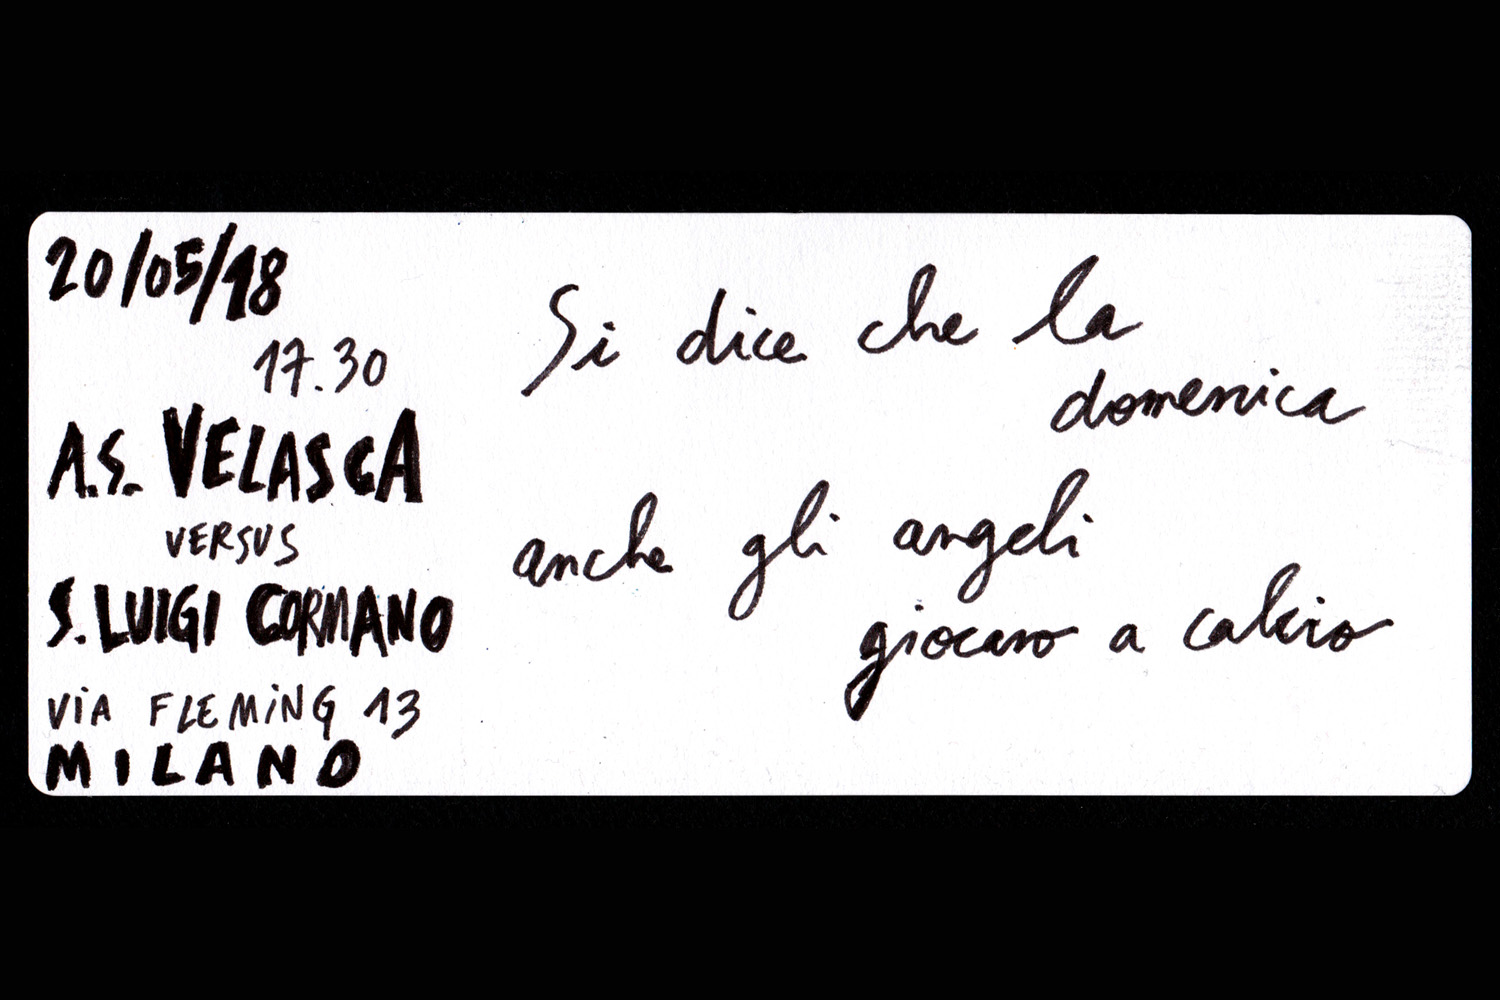 20/05/18
17.30
A.S. VELASCA
VERSUS
S. LUIGI CORMANO
ViA FLEMiNG 13
MILANO
Si dice che la
domenica
anche gli angeli
giocano a calcio